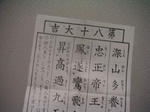 第八十大吉
深山多養
忠正帝王
鳳遂鸞
昇高過九